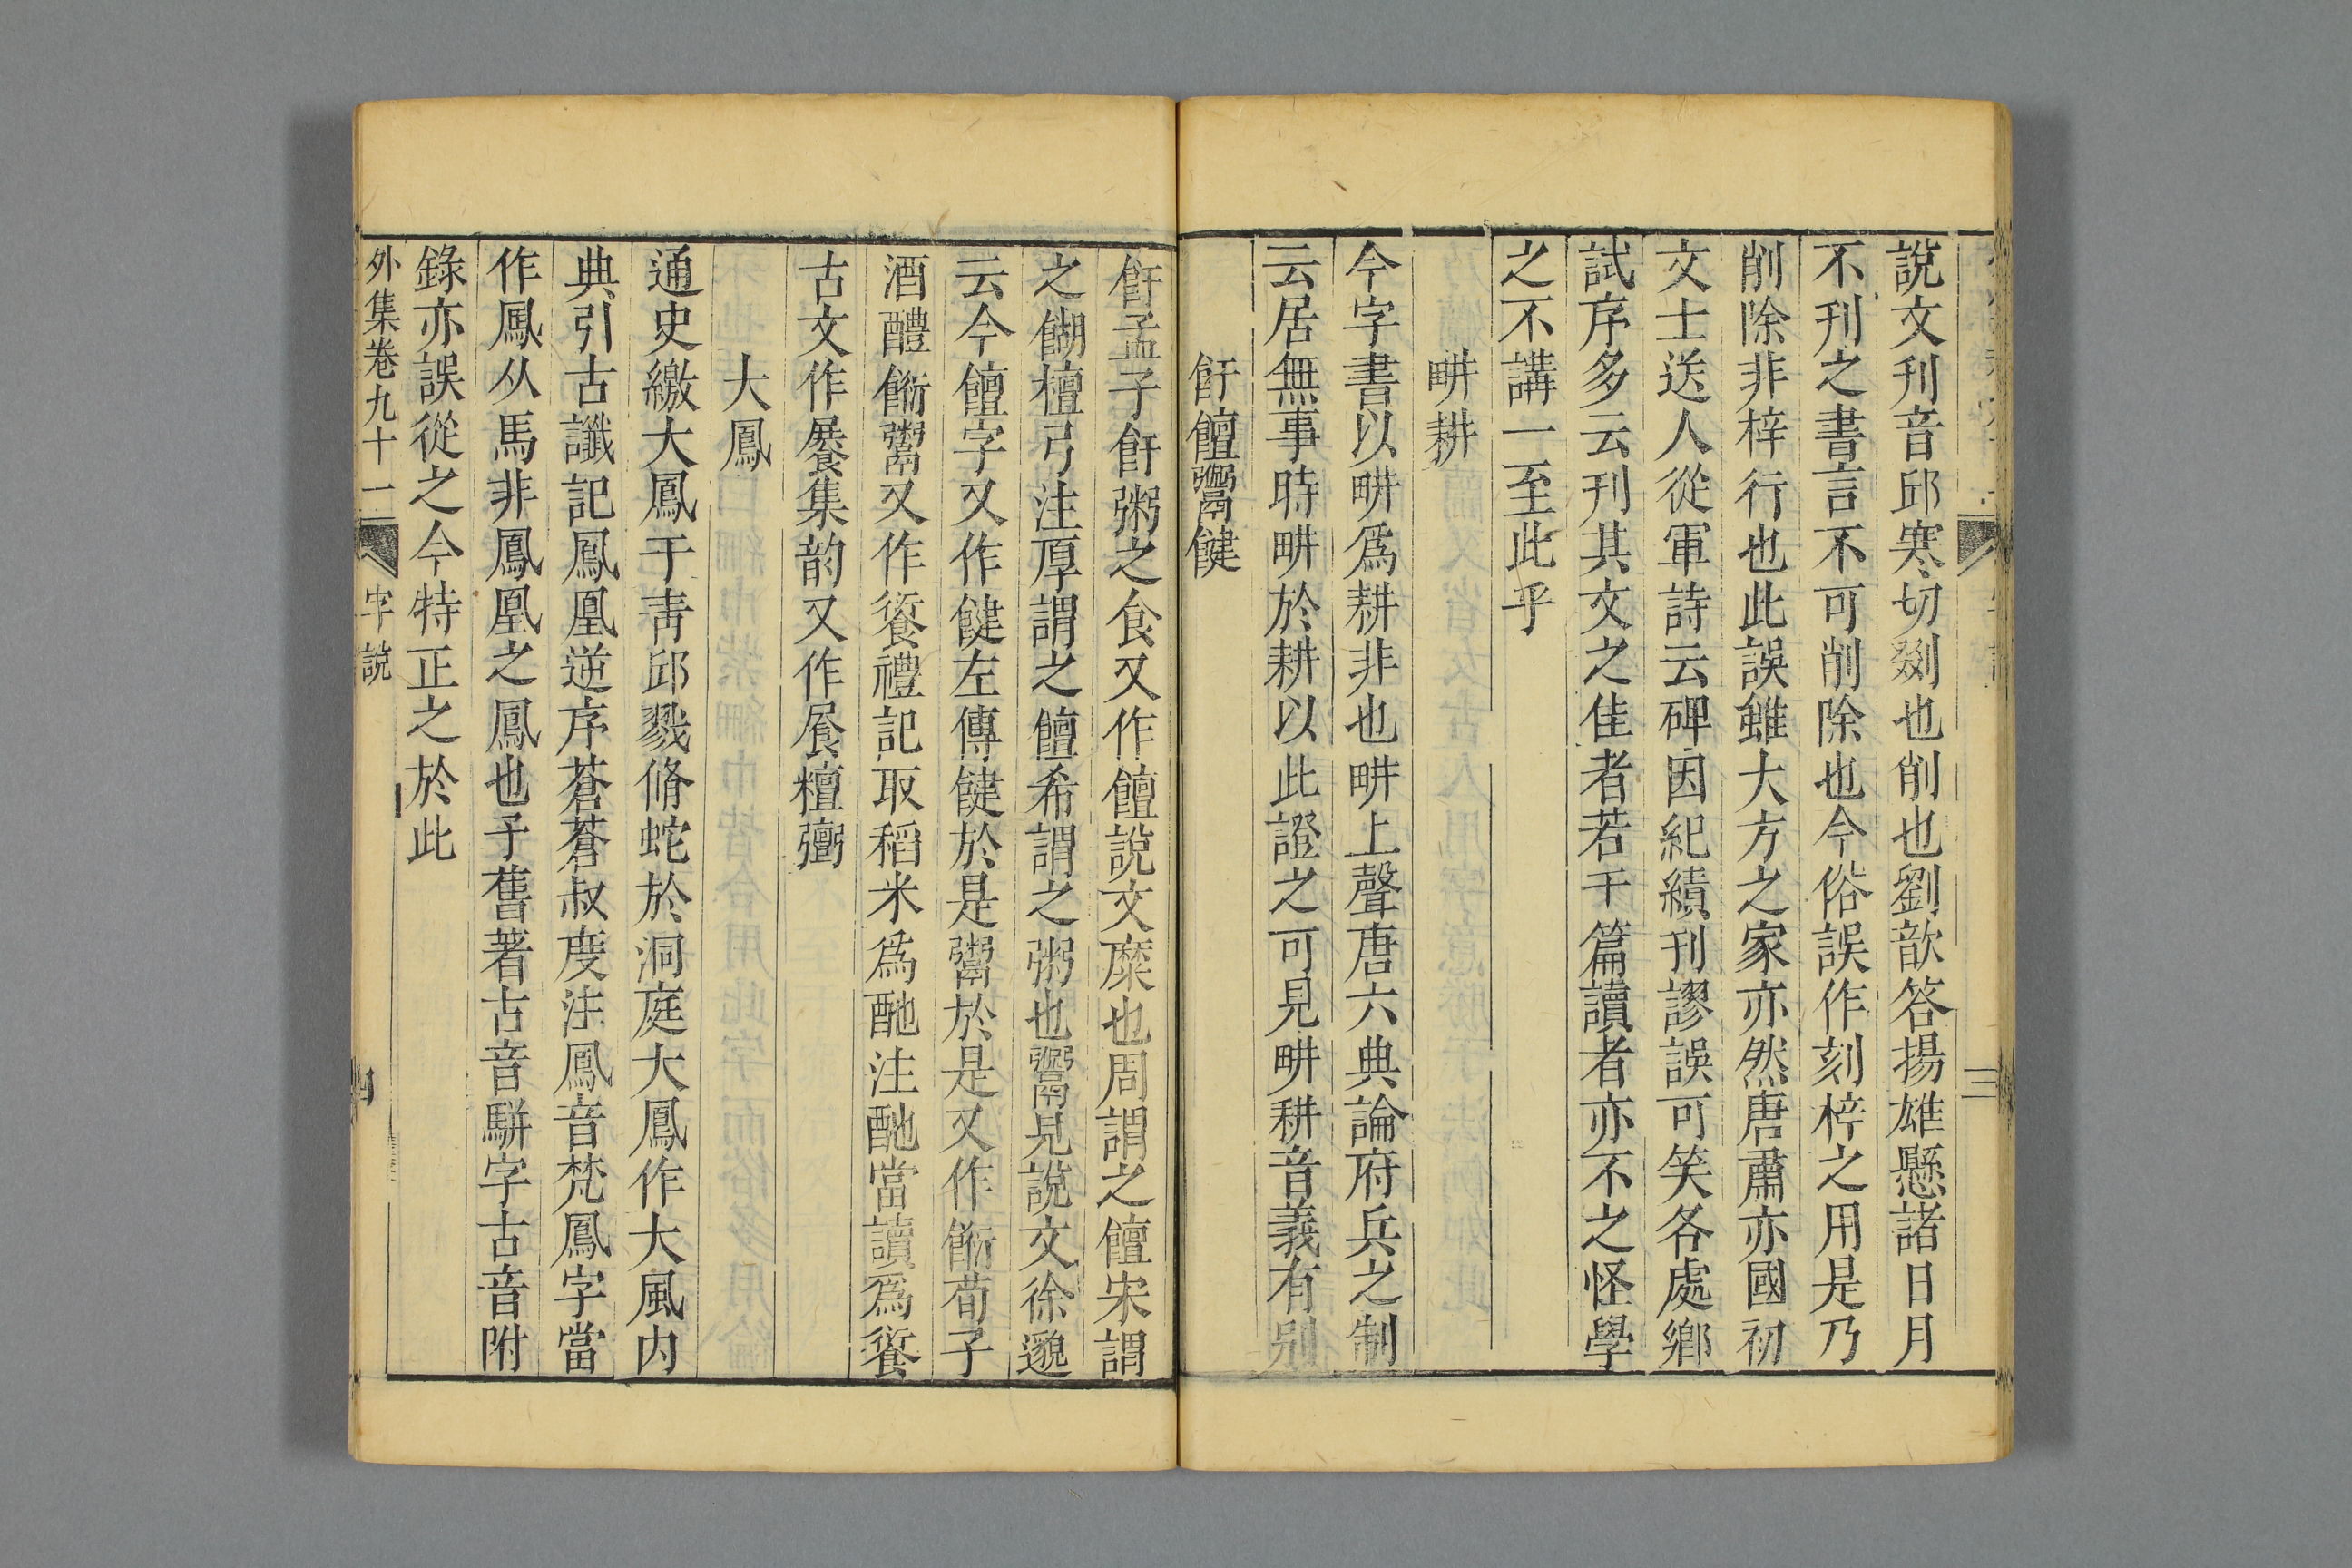 說文刊音邱寒切剟也削也劉歆答揚雄懸諸日月
不刊之書言不可削除也今俗誤作刻梓之用是乃
削除非梓行也此誤雖大方之家亦然唐肅亦國初
文士送人從軍詩云碑因紀績刊謬誤可笑各處鄉
試序多云刊其文之佳者若干篇讀者亦不之怪學
之不講一至此乎
畊耕
今字書以畊爲耕非也畊上聲唐六典論府兵之制
云居無事時畊於耕以此證之可見畊耕音義有别
飦饘鬻健
飦孟子飦粥之食又作饘說文糜也周謂之饘宋謂
之餬檀弓注厚謂之饘希謂之粥也鬻見說文徐邈
云今饘字又作健左傳健於是鬻於是又作䭈荀子
酒醴䭈鬻又作餰禮記取稻米爲酏注酏當讀爲餰
古文作㞡集韵又作𩜾糫𢐸
大鳳
通史繳大鳳于靑邱戮脩蛇於洞庭大鳳作大風内
典引古讖記鳳凰逆序蒼蒼叔度注鳳音梵鳳字當
作鳯从馬非鳳凰之鳳也予舊著古音駢字古音附
錄亦誤從之今特正之於此
外集卷九十一 字說 四